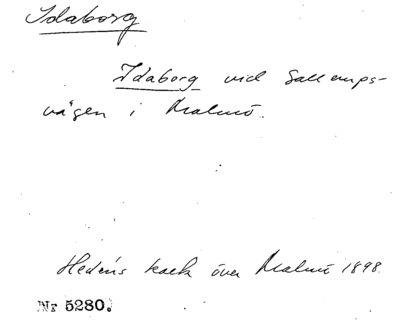 Idaborg
Idaborg vid Sallerups-
vägen i Malmö.
Hedéns karta över Malmö 1898.
Nr 5280.